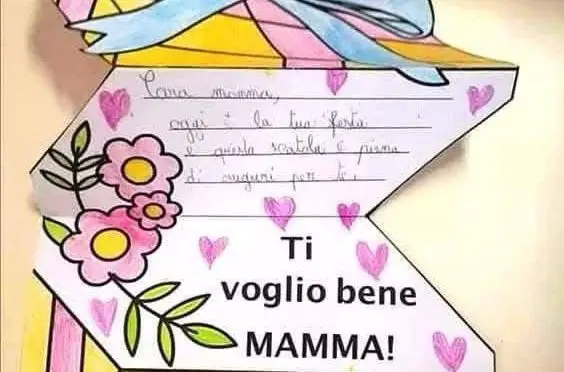 Cara mamma,
oggi è la tua festa
e questa scatola è piena
di auguri per te.
Ti
voglio bene
MAMMA!